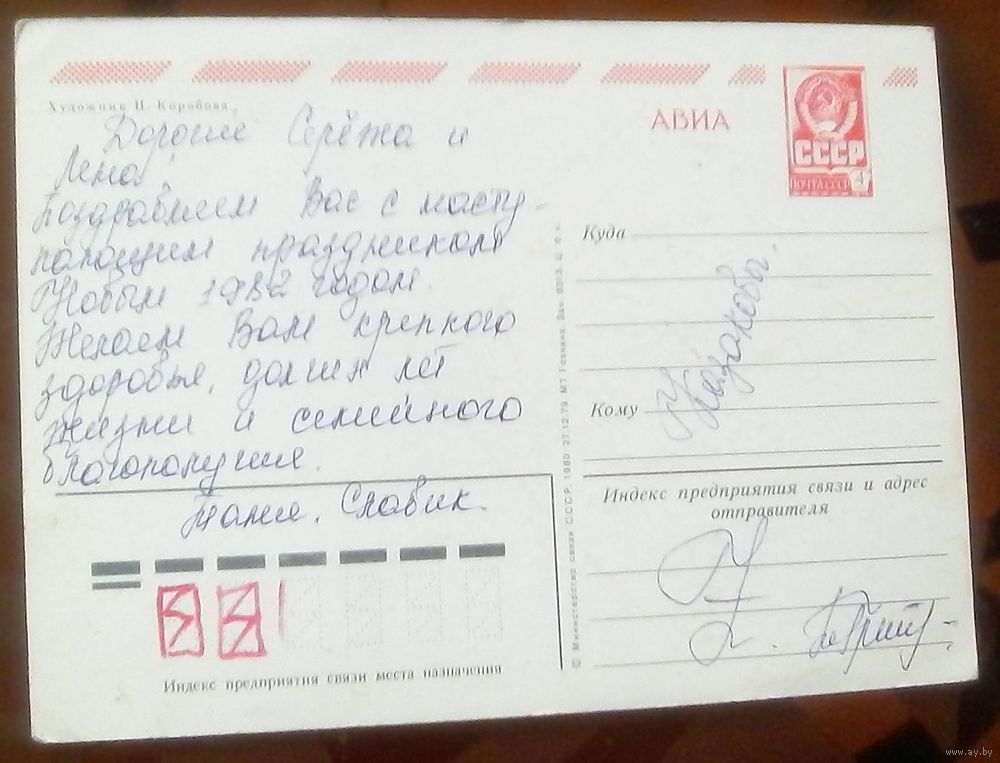 Художник Н. Коробова
АВИА
СССР
ПОЧТА СССР 4
Дорогие Серёжа и
Лена!
Поздравляем Вас с насту-
пающим праздником
Новым 1982 годом.
Желаем Вам крепкого
здоровья, долгих лет
жизни и семейного
благополучия.
Таня, Славик.
Куда
Кому
Казаковы.
Индекс предприятия связи и адрес
отправителя
Индекс предприятия связи места назначения
© Министерство связи СССР, 1980. 27.12.79. МТ Гознака. Зак.
www.ay.by